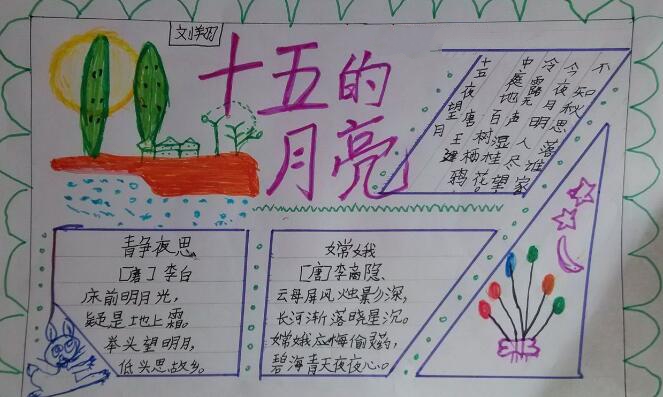 刘翔
十五的
月亮
十五夜望月
唐 王建
中庭地白树栖鸦。
冷露无声湿桂花。
今夜月明人尽望
不知秋思落谁家。
静夜思
[唐]李白
床前明月光,
疑是地上霜。
举头望明月,
低头思故乡。
嫦娥
[唐]李商隐、
云母屏风烛影深,
长河渐落晓星沉。
嫦娥应悔偷灵药,
碧海青天夜夜心。